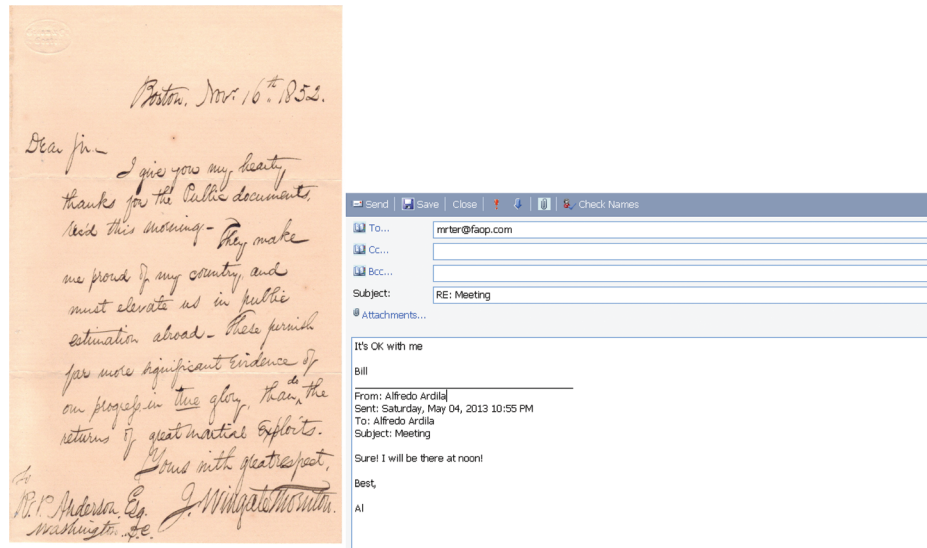 Boston, Nov. 16th 1852.
Dear Sir
I give you my hearty
thanks for the Public documents,
rec'd this morning - They make
me proud of my country, and
must elevate us in public
estimation abroad - These furnish
far more significant Evidence of
our progress in true glory, than do the
returns of great martial Exploits.
Yours with great respect,
J. Wingate Thornton.
To
R. P. Anderson, Esq.
Washington, D.C.
Send Save Close Check Names
To... mrter@faop.com
Cc...
Bcc...
Subject: RE: Meeting
Attachments...
It's OK with me
Bill
From: Alfredo Ardila
Sent: Saturday, May 04, 2013 10:55 PM
To: Alfredo Ardila
Subject: Meeting
Sure! I will be there at noon!
Best,
Al